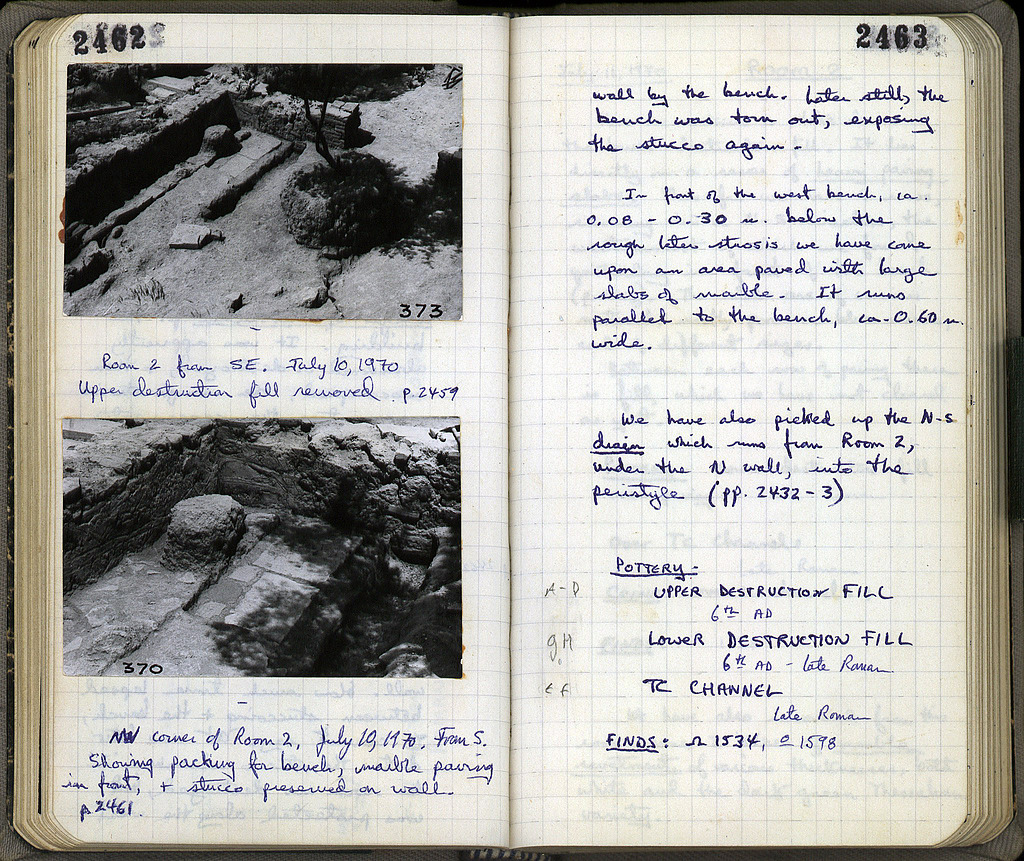 2462
373
Room 2 from SE. July 10, 1970
Upper destruction fill removed. p. 2459
370
NW corner of Room 2, July 10, 1970. From S.
Showing packing for bench, marble paving
in front, + stucco preserved on wall.
p. 2461.
2463
wall by the bench. Later still, the
bench was torn out, exposing
the stucco again.
In front of the west bench, ca.
0.08 - 0.30 m. below the
rough later strosis we have come
upon an area paved with large
slabs of marble. It runs
parallel to the bench, ca. 0.60 m.
wide.
We have also picked up the N-S
drain which runs from Room 2,
under the N wall, into the
peristyle (pp. 2432-3)
POTTERY:
A-D UPPER DESTRUCTION FILL
6th AD
G H LOWER DESTRUCTION FILL
6th AD - late Roman
E F TC CHANNEL
Late Roman
FINDS: Ω 1534, 1598